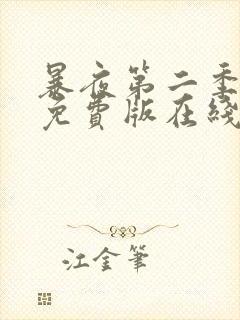 暴夜第二季
免費版在綫
江金筆